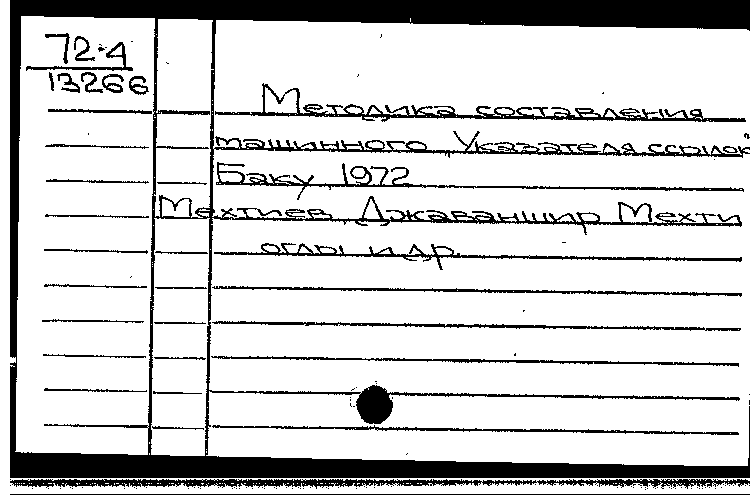 72-4
13266
Методика составления
машинного "Указателя ссылок"
Баку, 1972
Мехтиев, Джаваншир Мехти
оглы и др.